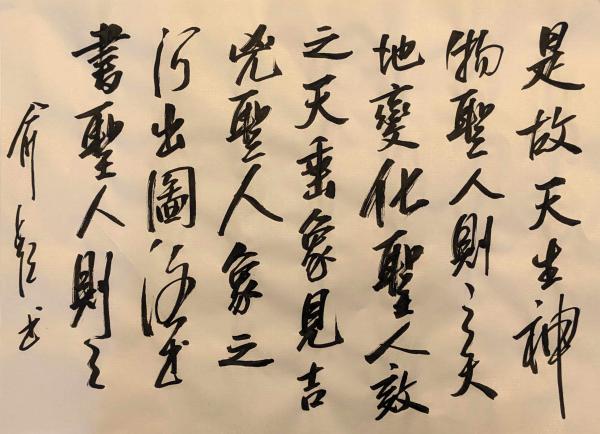 是故天生神
物聖人則之天
地變化聖人效
之天垂象見吉
兇聖人象之
河出圖洛出
書聖人則之
俞书